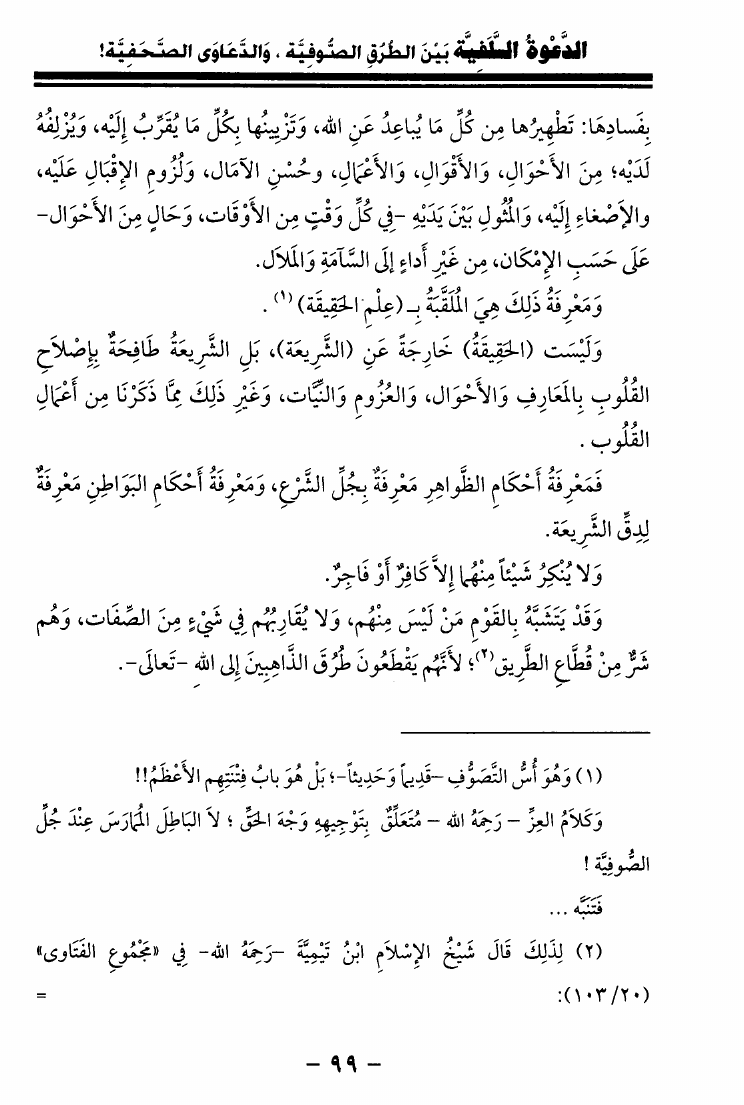 الدَّعْوةُ السَّلَفِيَّة بَيْنَ الطُّرُقِ الصُّوفِيَّة ، وَالدَّعَاوَى الصَّحَفِيَّة!
بِفَسادِهَا: تَطْهِيرُها مِن كُلِّ مَا يُباعِدُ عَنِ الله، وَتَزْيِينُها بِكُلِّ مَا يُقَرِّبُ إِلَيْه، وَيُزْلِفُهُ
لَدَيْه؛ مِنَ الأَحْوَالِ، وَالأَقْوَالِ، وَالأَعْمَالِ، وحُسْنِ الآمَال، وَلُزُومِ الإِقْبَالِ عَلَيْه،
والإِصْغاءِ إِلَيْه، وَالمُثُولِ بَيْنَ يَدَيْهِ -فِي كُلِّ وَقْتٍ مِن الأَوْقَات، وَحَالٍ مِنَ الأَحْوَال-
عَلَى حَسَبِ الإِمْكَان، مِن غَيْرِ أَداءٍ إِلَى السَّآمَةِ وَالمَلاَل.
وَمَعْرِفَةُ ذَلِكَ هِيَ المُلَقَّبَةُ بِـ (عِلْمِ الحَقِيقَة) (١) .
وَلَيْسَت (الحَقِيقَةُ) خَارِجَةً عَنِ (الشَّرِيعَة)، بَلِ الشَّرِيعَةُ طَافِحَةٌ بِإِصْلاَحِ
القُلُوبِ بِالمَعَارِفِ وَالأَحْوَال، وَالعُزُومِ وَالنِّيَّات، وَغَيْرِ ذَلِكَ مِمَّا ذَكَرْنَا مِن أَعْمَالِ
القُلُوب .
فَمَعْرِفَةُ أَحْكَامِ الظَّواهِرِ مَعْرِفَةٌ بِجُلِّ الشَّرْعِ، وَمَعْرِفَةُ أَحْكَامِ البَوَاطِنِ مَعْرِفَةٌ
لِدِقِّ الشَّرِيعَة.
وَلا يُنْكِرُ شَيْئاً مِنْهُما إِلاَّ كَافِرٌ أَوْ فَاجِرٌ.
وَقَدْ يَتَشَبَّهُ بِالقَوْمِ مَنْ لَيْسَ مِنْهُم، وَلا يُقَارِبُهُم فِي شَيْءٍ مِنَ الصِّفَات، وَهُم
شَرٌّ مِنْ قُطَّاعِ الطَّرِيق(٢)؛ لأَنَّهُم يَقْطَعُونَ طُرُقَ الذَّاهِبِينَ إِلى اللهِ -تَعالَى-.
(١) وَهُوَ أُسُّ التَّصَوُّفِ -قَدِيماً وَحَدِيثاً-؛ بَلْ هُوَ بابُ فِتْنَتِهِم الأَعْظَمُ!!
وَكَلاَمُ العِزِّ - رَحِمَهُ الله - مُتَعَلِّقٌ بِتَوْجِيهِهِ وَجْهَ الحَقِّ ؛ لاَ البَاطِلَ المُمَارَسَ عِنْدَ جُلِّ
الصُّوفِيَّة !
فَتَنَبَّه ...
(٢) لِذَلِكَ قَالَ شَيْخُ الإِسْلاَمِ ابْنُ تَيْمِيَّةَ -رَحِمَهُ الله- فِي «مَجْمُوعِ الفَتَاوى»
(١٠٣/٢٠): =
- ٩٩ -